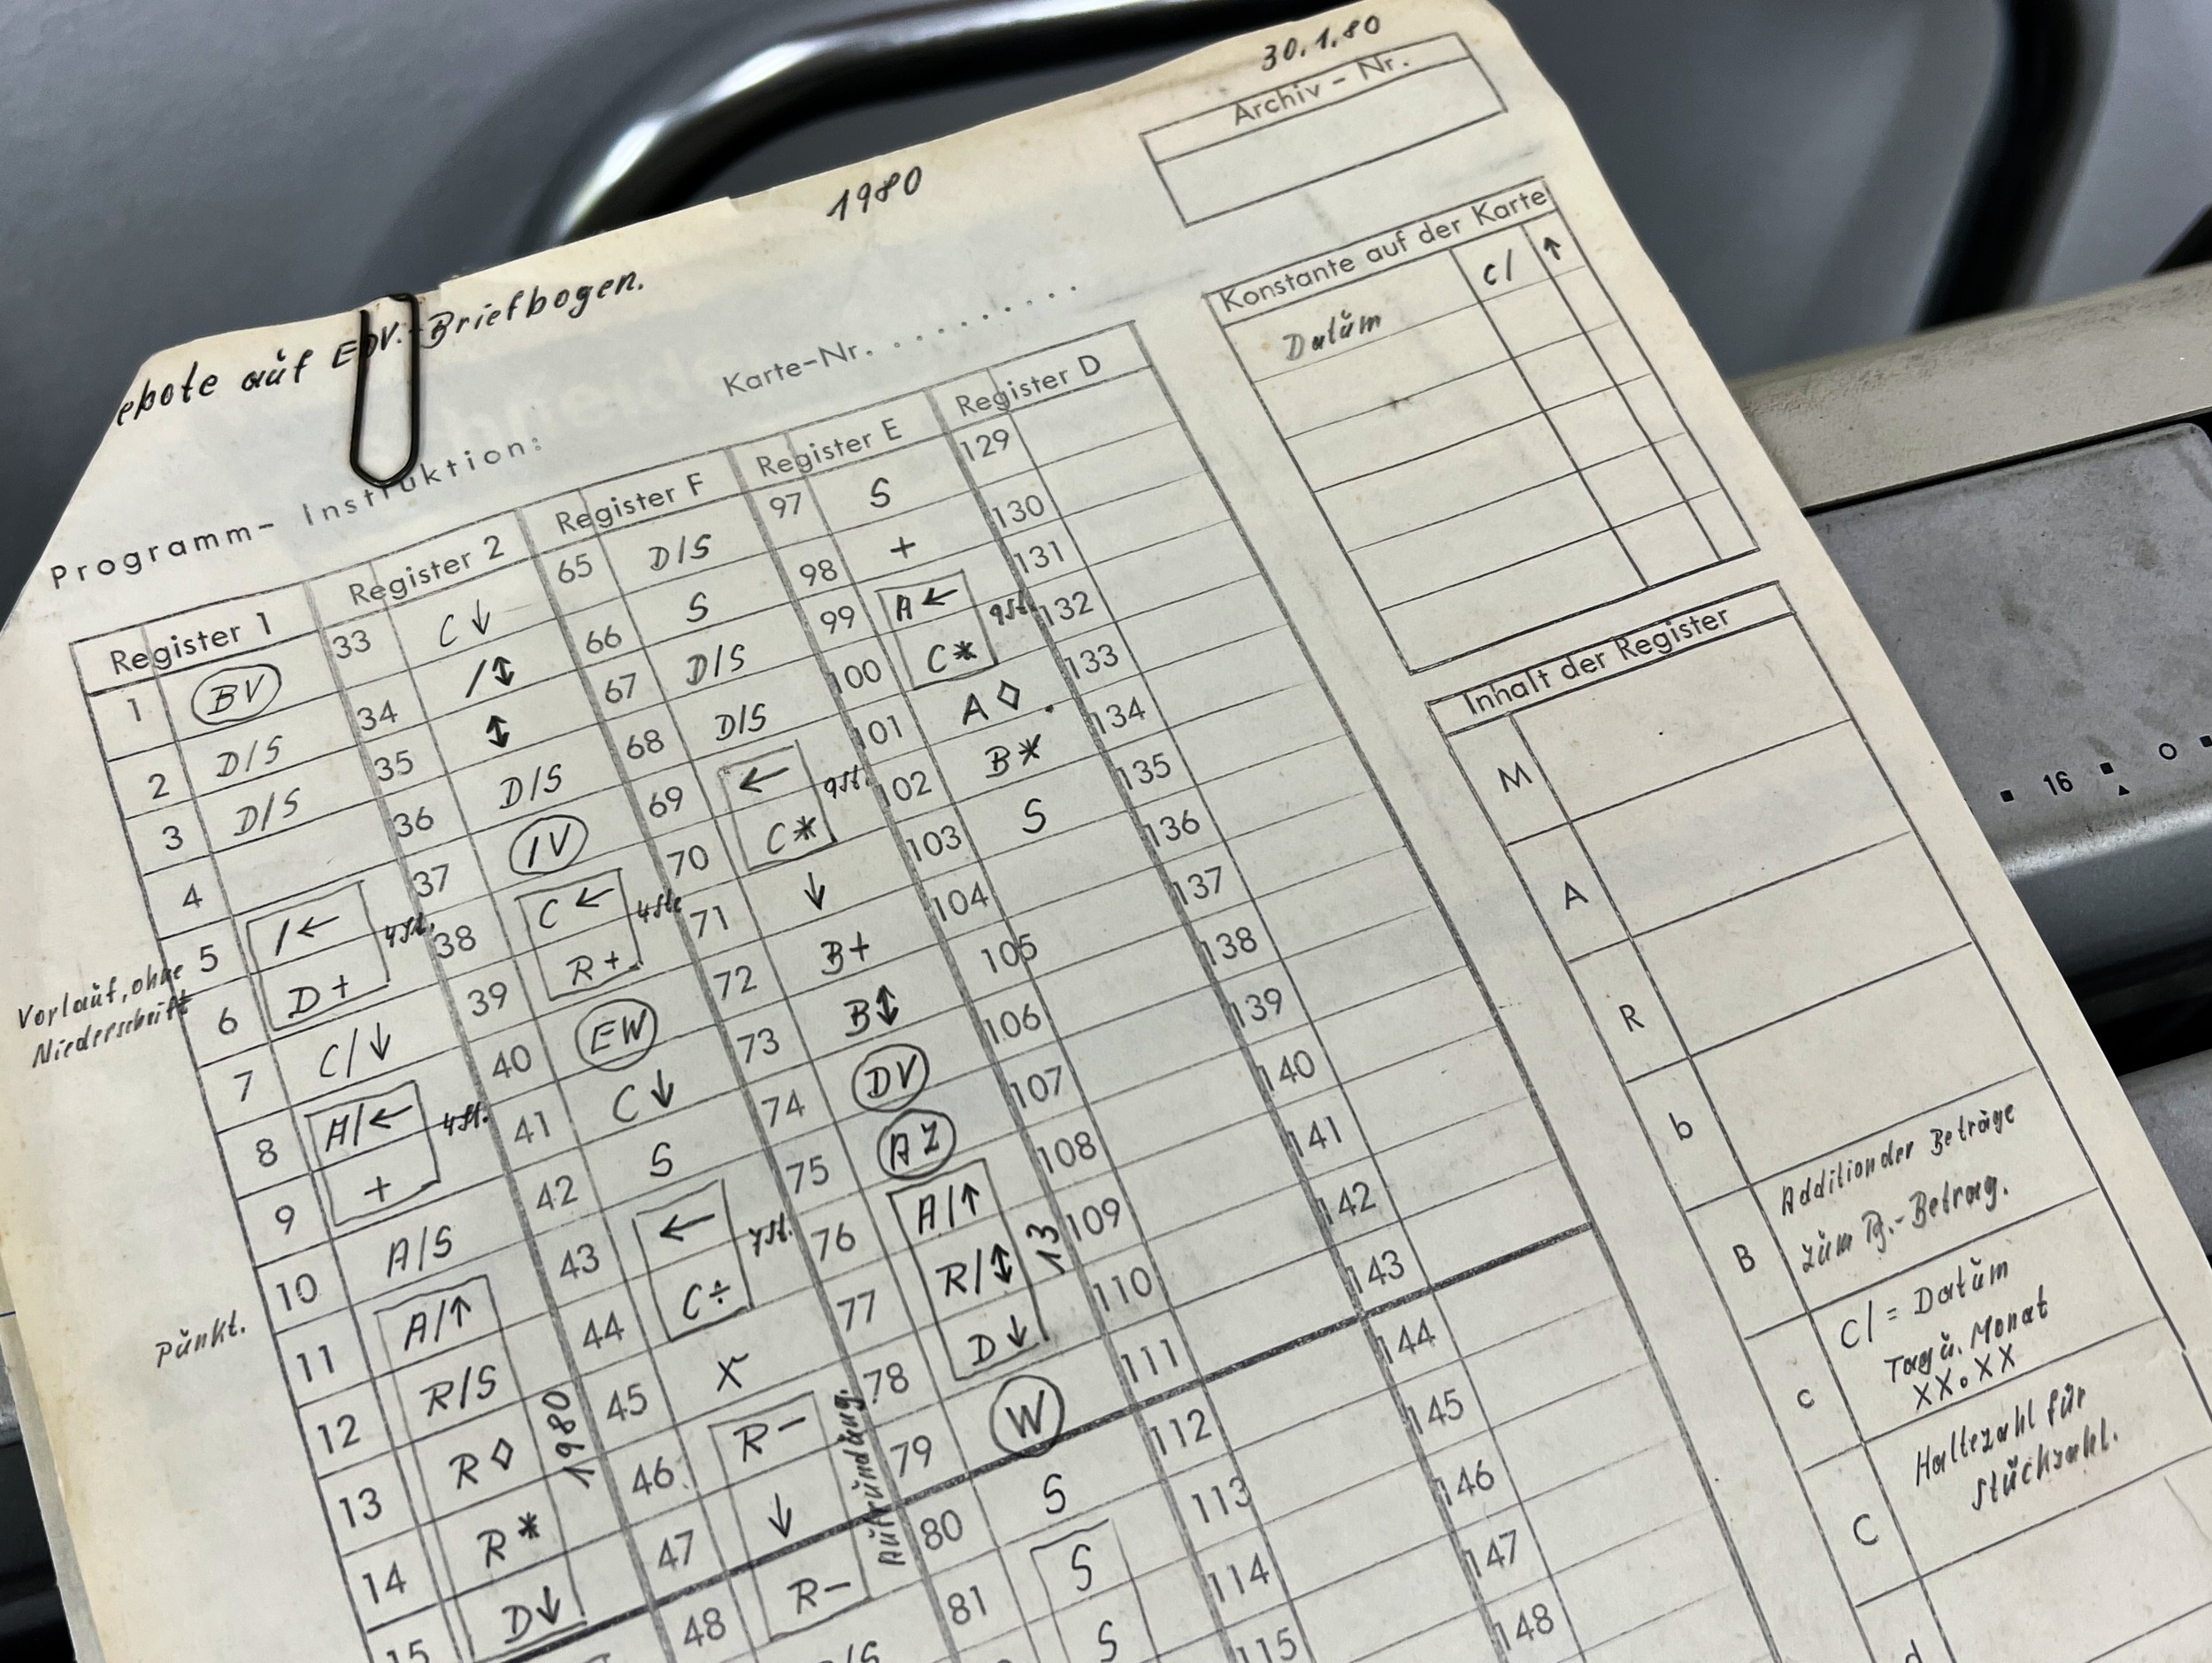 30.1.80
Archiv - Nr.
1980
ebote auf EDV.-Briefbogen.
Karte-Nr. . . . . . . . . .
Programm- Instruktion:
Register 1
1 BV
2 D/S
3 D/S
4
5 /← 4st.
6 D+
Vorlauf, ohne
Niederschrift
7 C/↓
8 A/← 4st.
9 +
10 A/S
Punkt.
11 A/↑
12 R/S
13 R◊
14 R*
15 D↓
1980
Register 2
33 C↓
34 /↕
35 ↕
36 D/S
37 IV
38 C← 4st.
39 R+
40 EW
41 C↓
42 S
43 ← 7st.
44 C÷
45 X
46 R-
47 ↓
48 R-
Aufrundung.
Register F
65 D/S
66 S
67 D/S
68 D/S
69 ← 9st.
70 C*
71 ↓
72 B+
73 B↕
74 DV
75 AZ
76 A/↑
77 R/↕
78 D↓
13
79 W
80 S
81 S
S
Register E
97 S
98 +
99 A← 9st.
100 C*
101 A◊
102 B*
103 S
104
105
106
107
108
109
110
111
112
113
114
115
Register D
129
130
131
132
133
134
135
136
137
138
139
140
141
142
143
144
145
146
147
148
Konstante auf der Karte
Datum C/ ↑
Inhalt der Register
M
A
R
b
B Addition der Beträge
zum Betrag.
c C/ = Datum
Tag u. Monat
XX.XX
C Haltezahl für
Stückzahl.
d
16